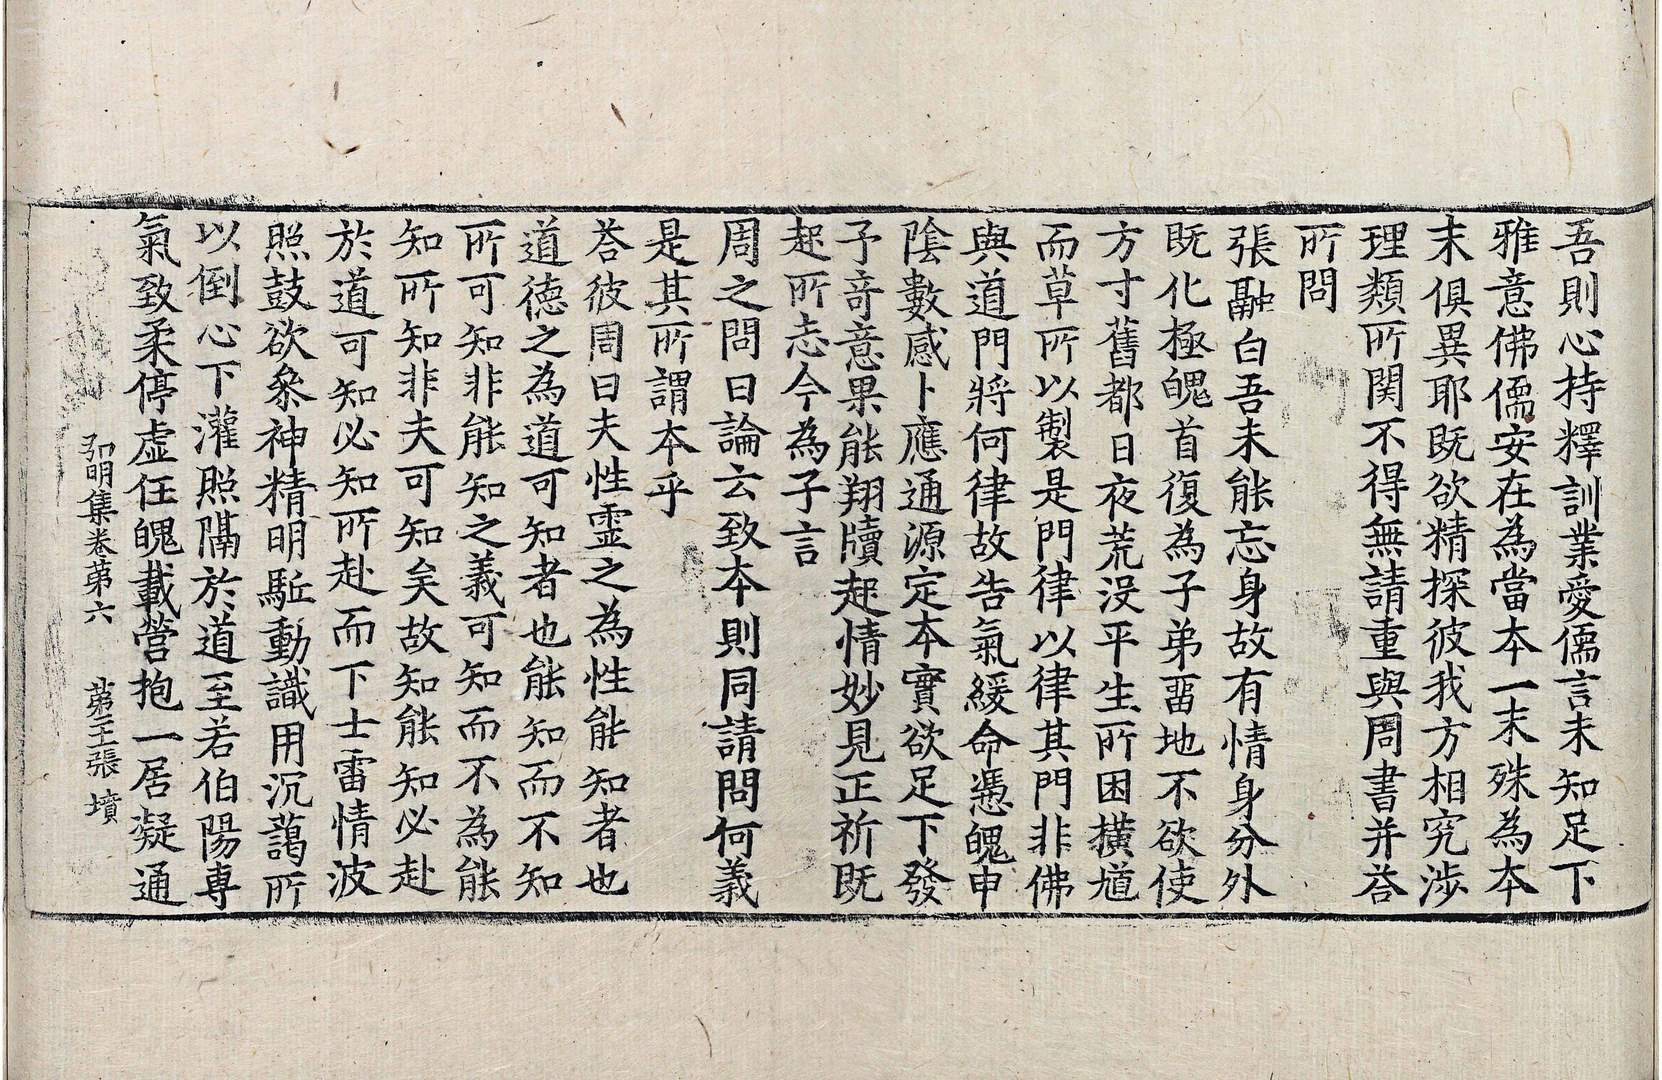 吾則心持釋訓業愛儒言未知足下
雅意佛儒安在為當本一末殊為本
末俱異耶既欲精探彼我方相究涉
理類所関不得無請重與周書并荅
所問
張融白吾未能忘身故有情身分外
既化極魄首復為子弟畱地不欲使
方寸舊都日夜荒没平生所困橫馗
而草所以製是門律以律其門非佛
與道門將何律故告氣緩命憑魄申
陰數感卜應通源定本實欲足下發
予竒意果能翔牘起情妙見正祈既
起所志今為子言
周之問曰論云致本則同請問何義
是其所謂本乎
荅彼周曰夫性霊之為性能知者也
道德之為道可知者也能知而不知
所可知非能知之義可知而不為能
知所知非夫可知矣故知能知必赴
於道可知必知所赴而下士雷情波
照鼓欲叅神精明駈動識用沉藹所
以倒心下灌照隔於道至若伯陽專
氣致柔停虚任魄載營抱一居凝通
弘明集卷第六 第王張 墳